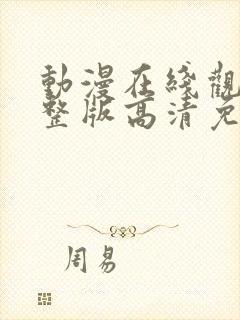 動漫在綫觀
整版高清免
周易